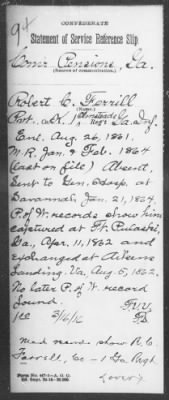 CONFEDERATE
Statement of Service Reference Slip
Comr Pensions, Ga.
(Source of communication.)
Robert C. Ferrill
(Name.)
Olmsteads
Part. Co. 1, Regt Ga. Inf
Enl. Aug. 26, 1861.
M.R. Jan. & Feb. 1864
(last on file) Absent,
sent to Gen. Hosp. at
Savannah, Jan. 21, 1864.
P. of W. records show him
captured at Ft. Pulaski,
Ga., Apr. 11, 1862 and
exchanged at Aikens
Landing, Va., Aug. 5, 1862.
No later P. of W. record
found.
3/6/12
Med recds show R. C.
Ferrill, Co - 1 Ga Regt.
(over)
Form No. 447-1—A. G. O.